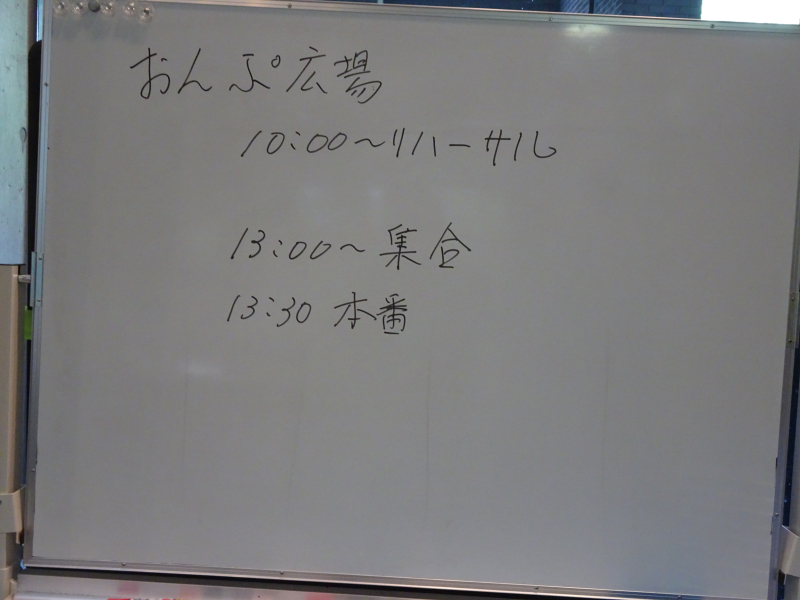 おんぷ広場
10:00～リハーサル
13:00～集合
13:30 本番